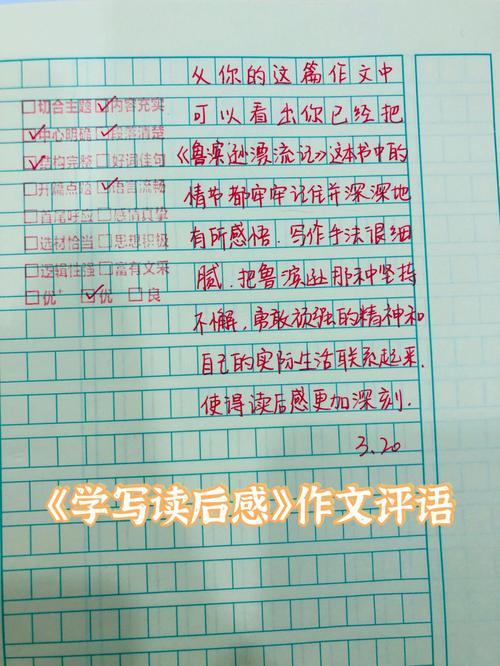 □切合主题 ☑内容充实
☑中心明确 ☑段落清楚
☑结构完整 □好词佳句
□开篇点题 ☑语言流畅
□首尾呼应 □感情真挚
□选材恰当 □思想积极
□逻辑性强 □富有文采
□优⁺ ☑优 □良
从你的这篇作文中
可以看出你已经把
《鲁滨逊漂流记》这本书中的
情节都牢牢记住并深深地
有所感悟.写作手法很细
腻.把鲁滨逊那种坚持
不懈,勇敢顽强的精神和
自己的实际生活联系起来.
使得读后感更加深刻.
3.20
《学写读后感》作文评语